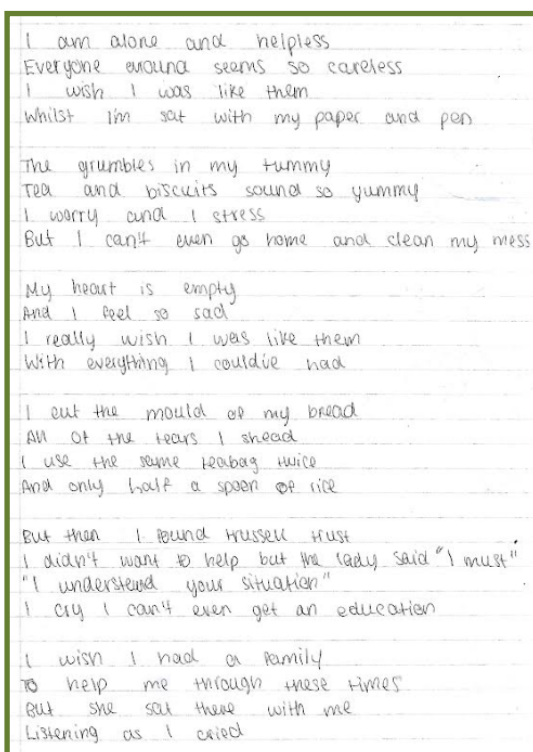 I am alone and helpless
Everyone around seems so careless
I wish I was like them
Whilst I'm sat with my paper and pen
The grumbles in my tummy
Tea and biscuits sound so yummy
I worry and I stress
But I can't even go home and clean my mess
My heart is empty
And I feel so sad
I really wish I was like them
With everything I could've had
I cut the mould of my bread
All of the tears I shead
I use the same teabag twice
And only half a spoon of rice
But then I found trussell trust
I didn't want to help but the lady said "I must"
"I understand your situation"
I cry I can't even get an education
I wish I had a family
To help me through these times
But she sat there with me
Listening as I cried